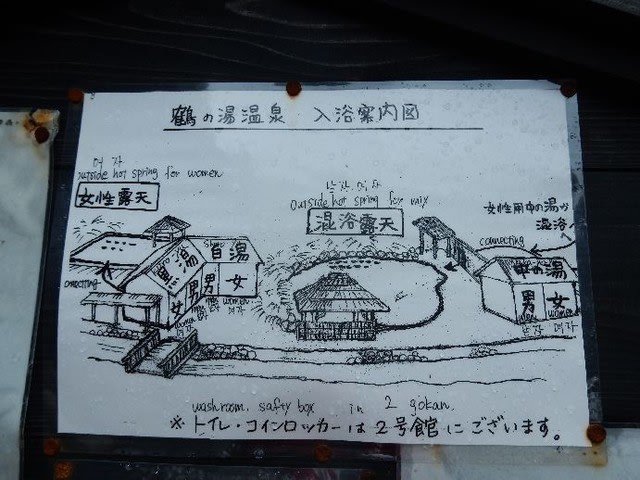 鶴の湯温泉 入浴案内図
여 자
outside hot spring for women
女性露天
남자, 여자
outside hot spring for mix
混浴露天
女性用中の湯から
混浴へ
connecting
connecting
黒湯
白湯
女 男
男 女
women
中の湯
男 女
women
남자 여자
washroom. safty box in 2 gokan.
※トイレ・コインロッカーは2号館にございます。